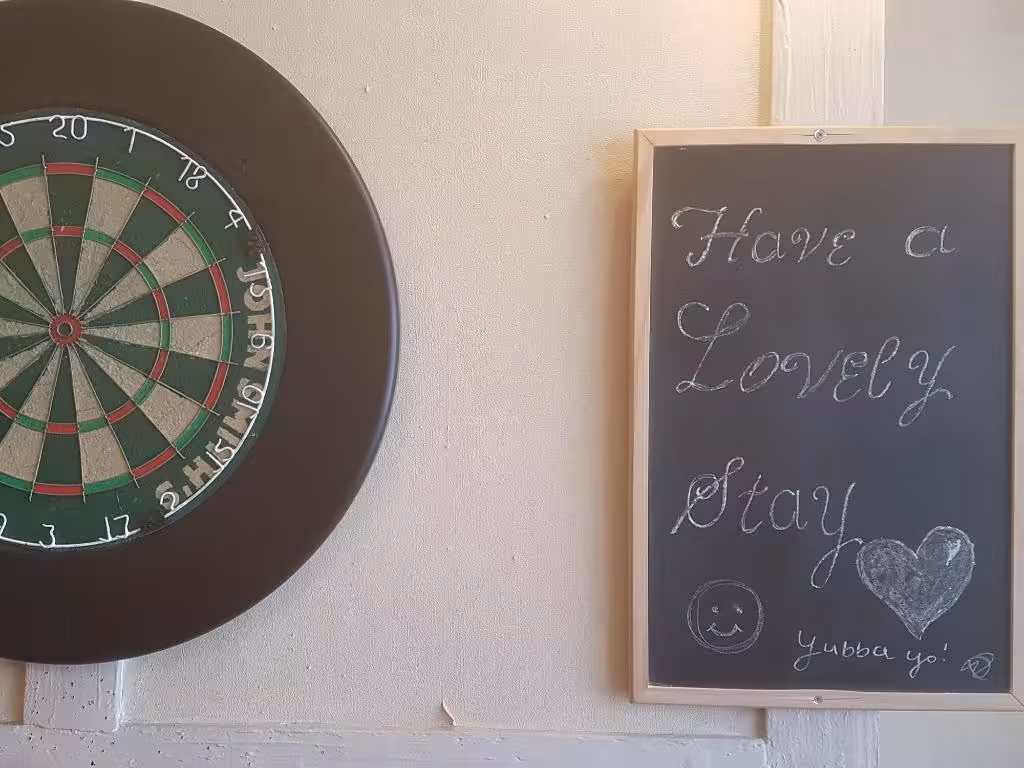 5 20 1 18 4 13 6 10 15 2 17 3
JOHN SMITH'S
Have a
Lovely
Stay
Yubba yo!